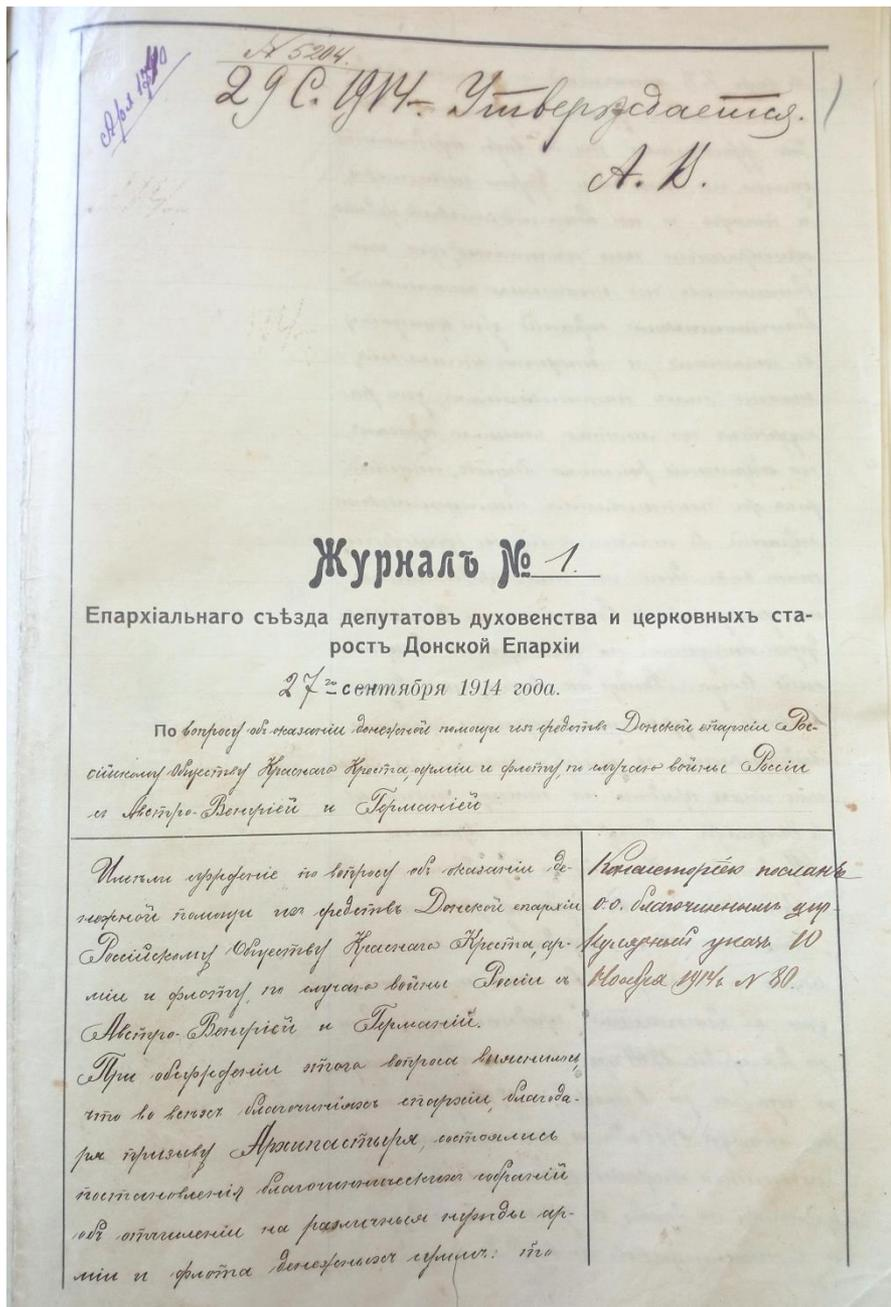 № 5204.
29 С. 1914 – Утверждается.
А. В.
Журналъ № 1.
Епархіальнаго съѣзда депутатовъ духовенства и церковныхъ ста-
ростъ Донской Епархіи
27го сентября 1914 года.
По вопросу объ оказаніи денежной помощи изъ средствъ Донской епархіи Рос-
сійскому Обществу Краснаго Креста, арміи и флоту, по случаю войны Россіи
съ Австро-Венгріей и Германіей
Имѣли сужденіе по вопросу объ оказаніи де-
нежной помощи изъ средствъ Донской епархіи
Россійскому Обществу Краснаго Креста, ар-
міи и флоту, по случаю войны Россіи съ
Австро-Венгріей и Германіей.
При обсужденіи этого вопроса выяснилось,
что во всѣхъ благочиніяхъ епархіи, благода-
ря призыву Архипастыря, состоялись
постановленія благочинническихъ собраній
объ отчисленіи на различныя нужды ар-
міи и флота денежныхъ суммъ: то
Консисторіею посланъ
о.о. благочиннымъ цир-
кулярный указъ 10
Ноября 1914 г. № 80.